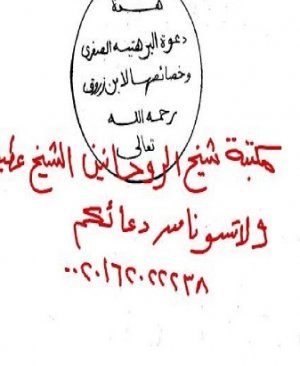 هذه
دعوة البرهتيه الصغرى
وخصائصها لابن زروق
رحمه الله
تعالى
مكتبة شيخ الروحانين الشيخ عطيه
ولاتسونا من دعائكم
٠٠٢٠١٦٢٠٢٢٢٣٨